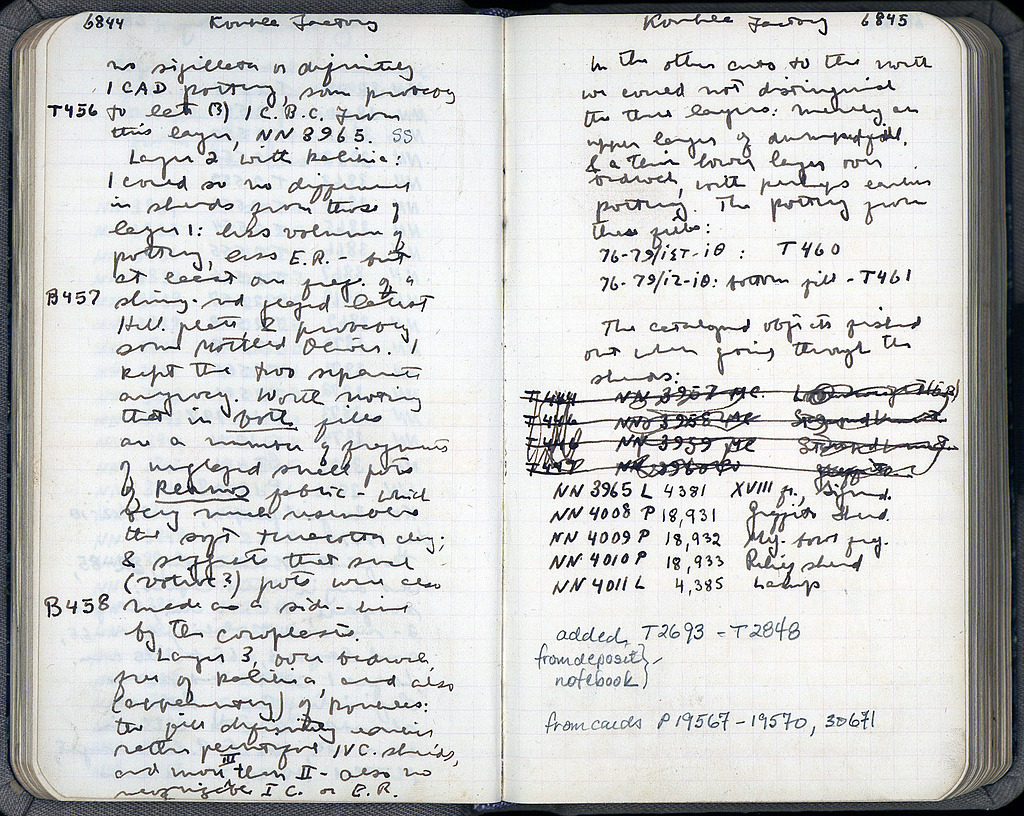 6844 Koubele Factory
no sigillata or definitely
1 CAD pottery, some probably
T456 to late (?) 1 C. B.C. From
this layer, NN 3965. SS
Layer 2, with
I could see no difference
in sherds from those of
layer 1: less volume of
pottery, less E.R. - but
at least one frag. of a
B457 shiny-red glazed latest
Hell. plate, & probably
some Mottled I
kept the two separate
anyway. Worth noting
that in both fills
are a number of fragments
of unglazed small pots
of fabric - which
very much resembles
the soft terracotta clay;
& suggests that such
(votive?) pots were also
B458 made as a side-line
by the coroplasts.
Layer 3, over bedrock,
free of and also
(apparently) of
the fill definitely earlier
rather plentiful IV C. sherds,
and more III than II - also no
recognizable I C. or E.R.
Koubele Factory 6845
In the other cuts to the north
we could not distinguish
the three layers: merely an
upper layer of dumped fill,
& a thin lower layer over
bedrock, with perhaps earlier
pottery. The pottery from
these fills:
76-79/ΙΣΤ-ΙΘ : T460
76-79/ΙΖ-ΙΘ: bottom fill - T461
The catalogued objects fished
out when going through the
sherds:
T444 NN 3957 MC
T446 NN 3958 MC Stamped handle
T446 NN 3959 MC Stamped handle
NN 3960
NN 3965 L 4381 XVIII fr., signed.
NN 4008 P 18,931 Graffito sherd.
NN 4009 P 18,932 Meg. bowl frg.
NN 4010 P 18,933 Relief sherd
NN 4011 L 4,385 Lamp
added, T2693 - T2848
from deposit
notebook
from cards P 19567-19570, 30671